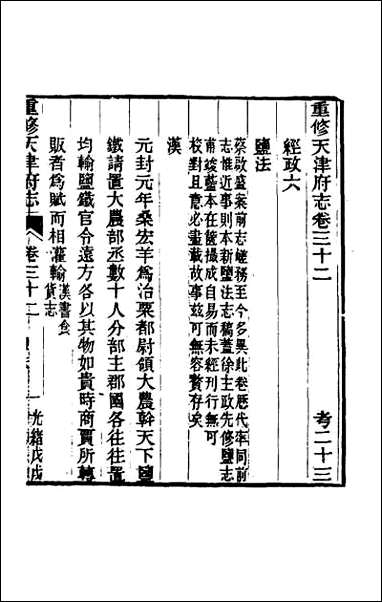 重修天津府志卷三十二 考二十三
經政六
鹽法
蔡啟盛案前志鹽務至今多異此卷歷代率同前
志惟近事則本新鹽法志稿蓋徐主政先修鹽志
甫竣藍本在篋撮成自易而未經刊行無可
校對且意必盡載故事茲可無容贅存矣
漢
元封元年桑宏羊為治粟都尉領大農幹天下鹽
鐵請置大農部丞數十人分部主郡國各往往置
均輸鹽鐵官令遠方各以其物如貴時商賈所轉
販者為賦而相灌輸漢書食貨志
重修天津府志 卷三十二 一 光緒戊戌